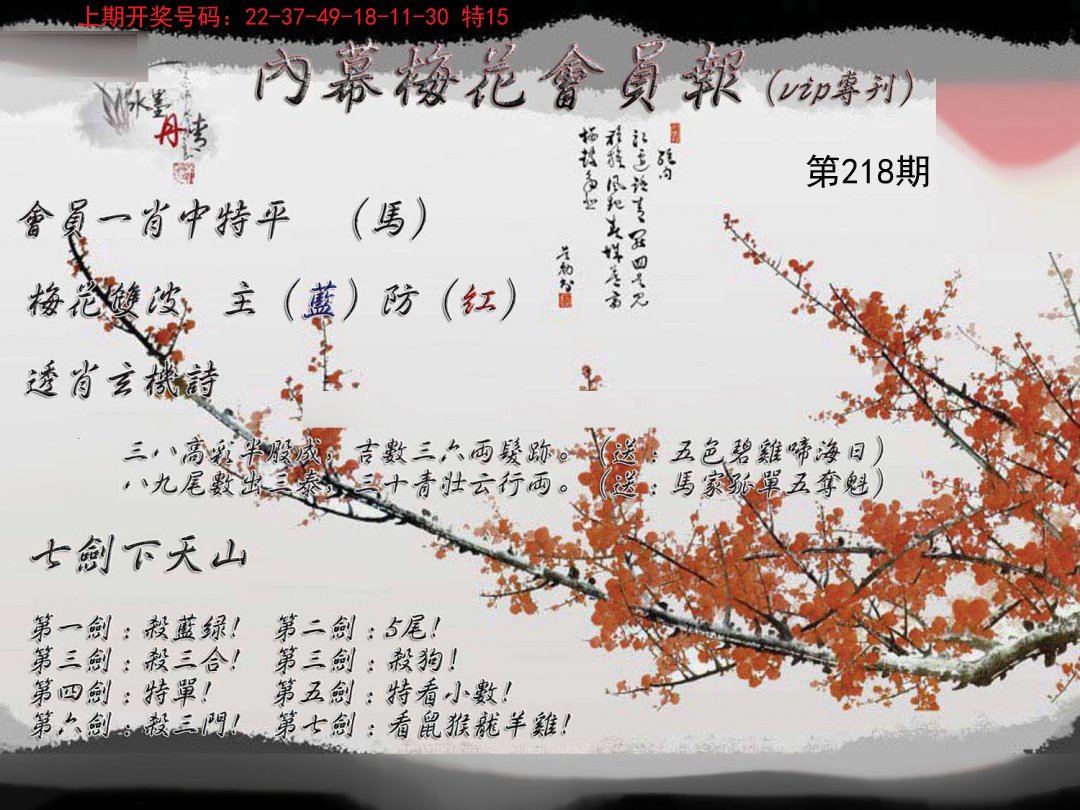 上期开奖号码：22-37-49-18-11-30 特15
內幕梅花會員報（vip專刊）
水墨
丹青
第218期
會員一肖中特平 （馬）
梅花雙波 主（藍）防（红）
透肖玄機詩
三八高彩半股成，吉數三六両鬓跡。（送：五色碧雞啼海日）
八九尾數出三泰，三十青壮云行両。（送：馬家孤單五奪魁）
七劍下天山
第一劍：殺藍绿！ 第二劍：5尾！
第三劍：殺三合！ 第三劍：殺狗！
第四劍：特單！ 第五劍：特看小數！
第六劍：殺三門！ 第七劍：看鼠猴龍羊雞！